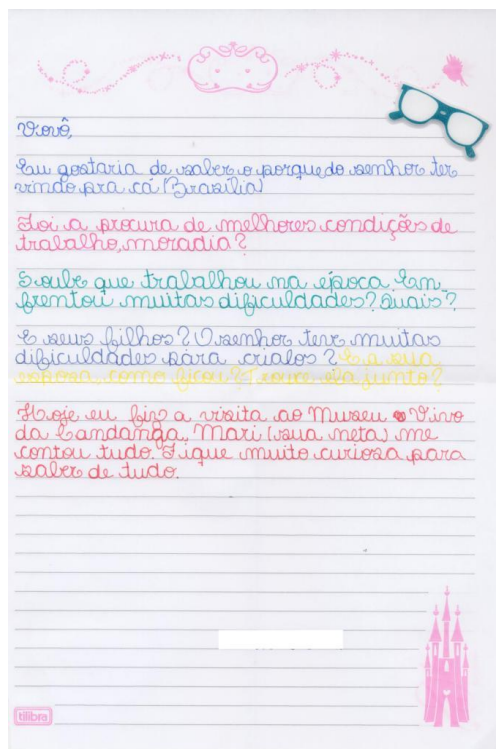 Vovô,
Eu gostaria de saber o porque do senhor ter
vindo pra cá (Brasília)
Foi a procura de melhores condições de
trabalho, moradia?
Soube que trabalhou na época. En
frentou muitas dificuldades? Quais?
E seus filhos? O senhor teve muitas
dificuldades para crialos? E a sua
esposa, como ficou? Trouxe ela junto?
Hoje eu fiz a visita ao Museu Vivo
da Candanga. Mari (sua neta) me
contou tudo. Fique muito curiosa para
saber de tudo.
tilibra